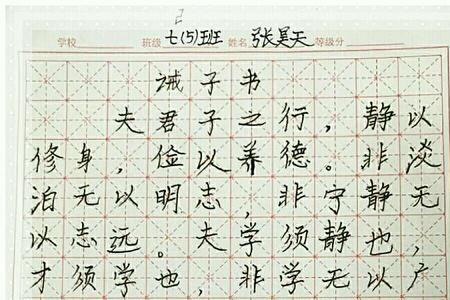 学校 班级 七(5)班 姓名 张昊天 等级分
诫子书
夫君子之行，静以
修身，俭以养德。非淡
泊无以明志，非宁静无
以志远。夫学须静也，
才须学也，非学无以广